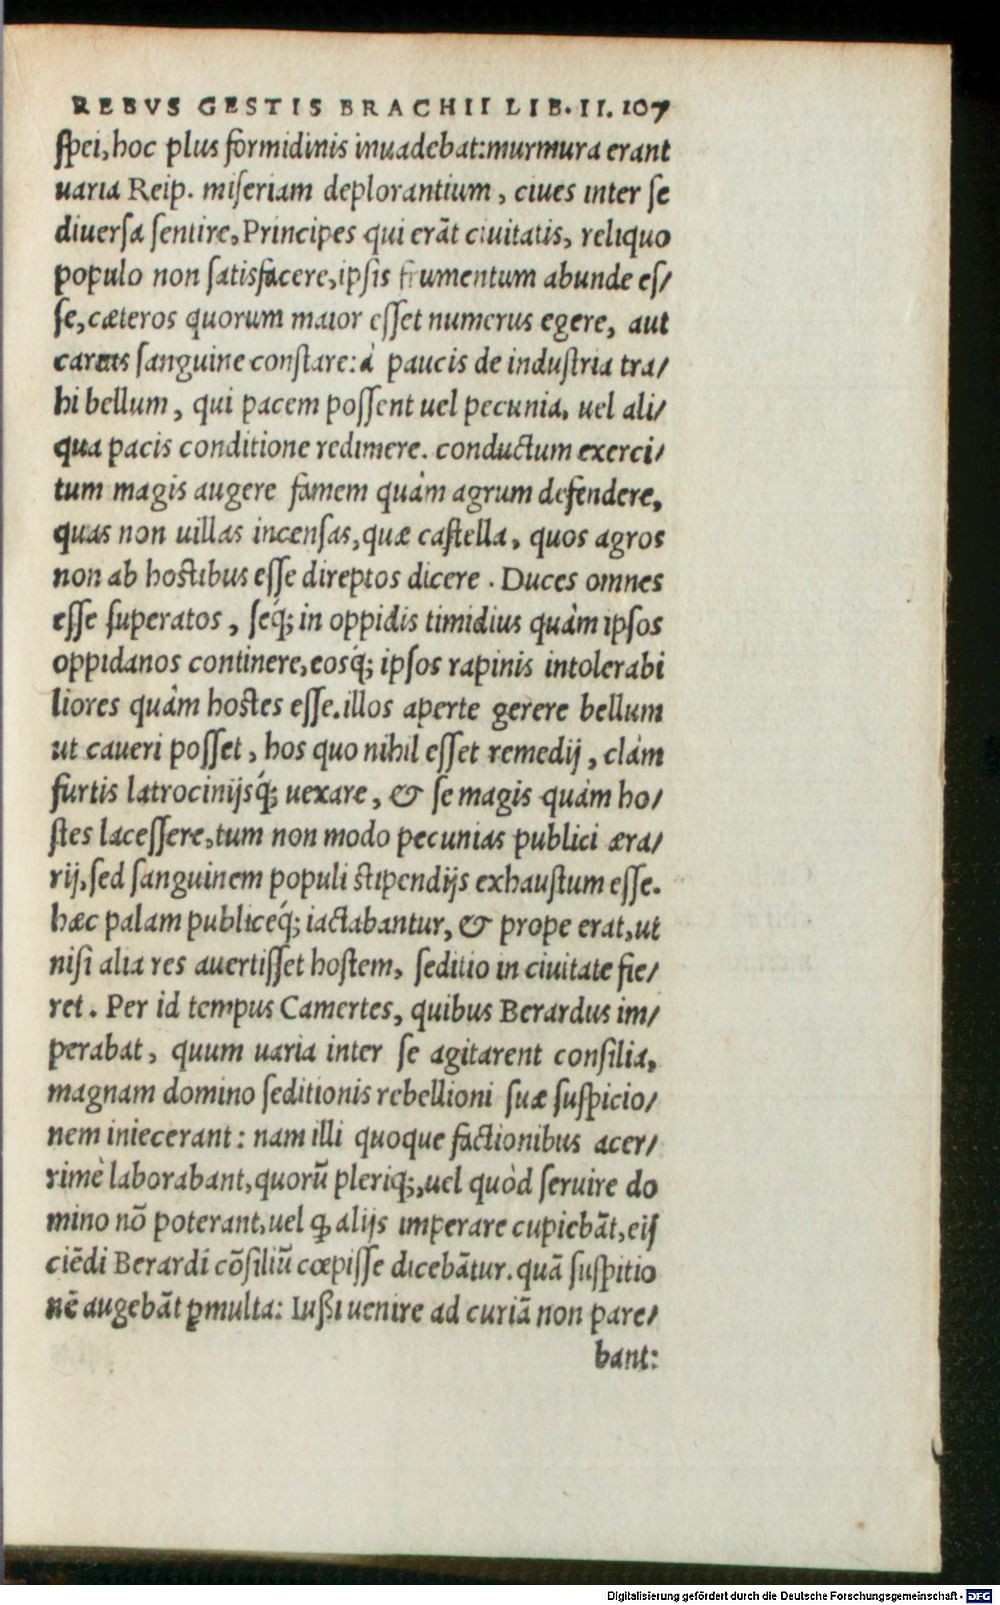 REBVS GESTIS BRACHII LIB. II. 107
ſpei, hoc plus formidinis inuadebat: murmura erant
uaria Reip. miſeriam deplorantium, ciues inter ſe
diuerſa ſentire, Principes qui erãt ciuitatis, reliquo
populo non ſatisfacere, ipſis frumentum abunde eſ/
ſe, cæteros quorum maior eſſet numerus egere, aut
carnis ſanguine conſtare: à paucis de induſtria tra/
hi bellum, qui pacem poſſent uel pecunia, uel ali/
qua pacis conditione redimere. conductum exerci/
tum magis augere famem quàm agrum defendere,
quas non uillas incenſas, quæ caſtella, quos agros
non ab hoſtibus eſſe direptos dicere. Duces omnes
eſſe ſuperatos, ſeq́; in oppidis timidius quàm ipſos
oppidanos continere, eosq́; ipſos rapinis intolerabi
liores quàm hoſtes eſſe. illos aperte gerere bellum
ut caueri poſſet, hos quo nihil eſſet remedij, clàm
furtis latrocinijsq́; uexare, & ſe magis quàm ho/
ſtes laceſſere, tum non modo pecunias publici æra/
rij, ſed ſanguinem populi ſtipendijs exhauſtum eſſe.
hæc palam publiceq́; iactabantur, & prope erat, ut
niſi alia res auertiſſet hoſtem, ſeditio in ciuitate fie/
ret. Per id tempus Camertes, quibus Berardus im/
perabat, quum uaria inter ſe agitarent conſilia,
magnam domino ſeditionis rebellioni ſuæ ſuſpicio/
nem iniecerant: nam illi quoque factionibus acer/
rimè laborabant, quorũ pleriq;, uel quòd ſeruire do
mino nõ poterant, uel ꝙ alijs imperare cupiebãt, eij
ciẽdi Berardi cõſiliũ cœpiſſe dicebãtur. quã ſuſpitio
nẽ augebãt ꝑmulta: Iußi uenire ad curiã non pare/
bant:
Digitalisierung gefördert durch die Deutsche Forschungsgemeinschaft - DFG